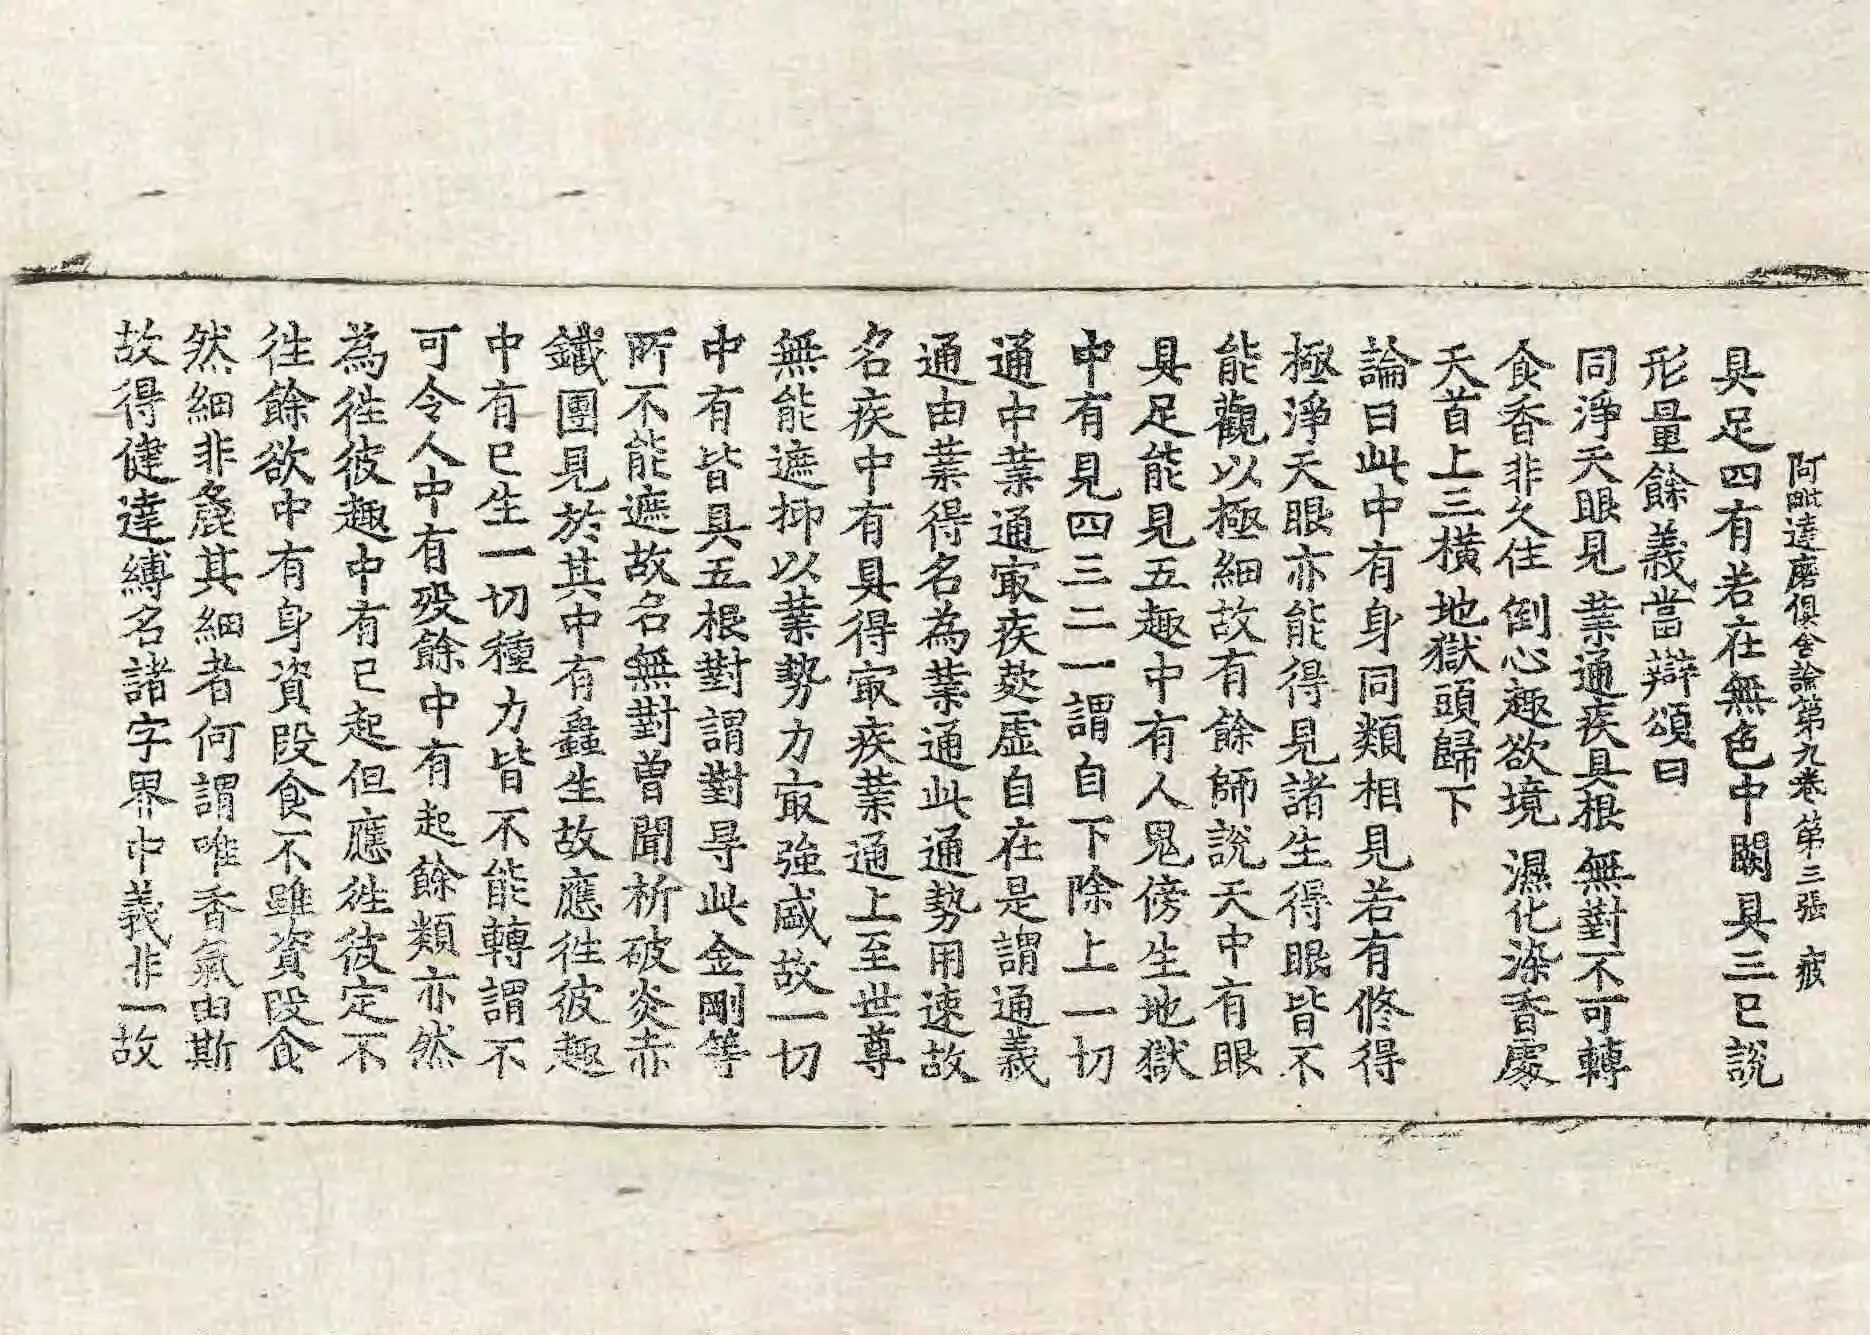 阿毗達磨俱舍論第九卷 第三張 疲
具足四有若在無色中闕具三已說
形量餘義當辯頌曰
同淨天眼見 業通疾具根 無對不可轉
食香非久住 倒心趣欲境 濕化染香處
天首上三橫 地獄頭歸下
論曰此中有身同類相見若有修得
極淨天眼亦能得見諸生得眼皆不
能觀以極細故有餘師說天中有眼
具足能見五趣中有人鬼傍生地獄
中有見四三二一謂自下除上一切
通中業通㝡疾㷠虛自在是謂通義
通由業得名為業通此通勢用速故
名疾中有具得㝡疾業通上至世尊
無能遮抑以業勢力㝡強盛故一切
中有皆具五根對謂對㝵此金剛等
所不能遮故名無對曾聞析破炎赤
鐵團見於其中有蟲生故應往彼趣
中有已生一切種力皆不能轉謂不
可令人中有歿餘中有起餘類亦然
為往彼趣中有已起但應往彼定不
往餘欲中有身資段食不雖資段食
然細非麁其細者何謂唯香氣由斯
故得健達縛名諸字界中義非一故